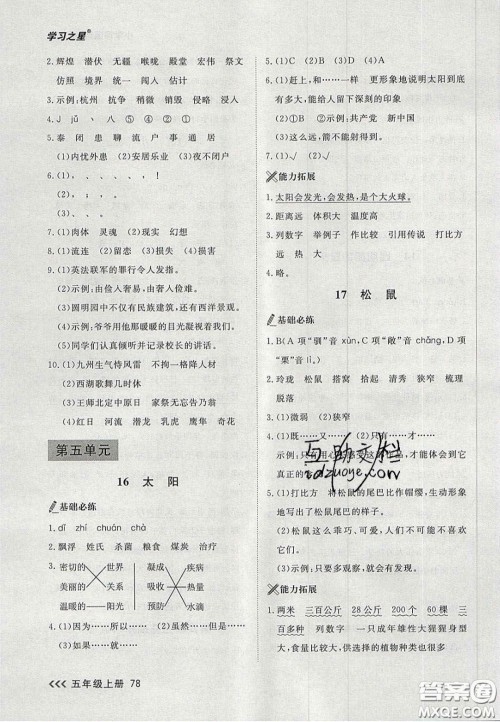 学习之星®
2.辉煌 潜伏 无疆 喉咙 殿堂 宏伟 祭文
仿照 境界 统一 闯入 估计
3.示例:杭州 抗争 稍微 销毁 侵略 浸入
4.J jǔ 、 八 ⑤ ④ ② ⑥
5.泰 闭 患 聊 流 户 事 通 居
(1)内忧外患 (2)安居乐业 (3)夜不闭户
6.(1) 、 、 、 、 。
(2) 、 、 。
7.(1)肉体 灵魂 (2)现实 幻想
8.(1)流连 (2)留恋 (3)顽强 (4)顽固
9.(1)英法联军的罪行令人发指。
(2)示例:由俭入奢易,由奢入俭难。
(3)圆明园中不仅有民族建筑,还有西洋景观。
(4)示例:爷爷用他那暖暖的目光凝视着我。
(5)同学们认真倾听并记录校长的讲话。
10.(1)九州生气恃风雷 不拘一格降人材
(2)西湖歌舞几时休
(3)王师北定中原日 家祭无忘告乃翁
(4)红日 河流 潜龙 乳虎 鹰隼 奇花
第五单元
16 太 阳
基础必练
1.dī zhí chuán chà
2.飘浮 姓氏 杀菌 粮食 煤炭 治疗
3.密切的 世界 凝成 疾病
美丽的 关系 吸收 热量
温暖的 阳光 预防 水滴
4.(1)因为…… 所以…… (2)虽然……但是……
(3)如果……就……
<<< 五年级上册 78
5.(1)× (2)√ (3)× (4)√
6.(1)赶上,和……一样 更形象地说明太阳到底
有多大,能给人留下深刻的印象
(2)①② 示例:共产党 新中国
(3)这么远,箭不能射得到。
7.(1)√ (2)√
能力拓展
1.太阳会发光,会发热,是个大火球。
2.距离远 体积大 温度高
3.列数字 举例子 作比较 引用传说 打比方
远 热 大
4.略。
17 松 鼠
基础必练
2.玲珑 松鼠 搭窝 拾起 清洁 狭窄 梳理
脱落
3.(1)微弱 (2)狭窄
互助文档
(5)(1)打比方 将松鼠的尾巴比作帽缨,生动形象地
写出了松鼠尾巴的样子。
(2)松鼠是这么乖巧、可爱,人们怎能不喜欢
它呢!
(3)示例:只要多观察,就会有发现。
能力拓展
1.两米 三百公斤 28公斤 200个 60棵 三
百多种 列数字 一只成年雄性大猩猩身型
庞大,食量大,供其选择的植物种类也很多
答案圈
MXQE.COM